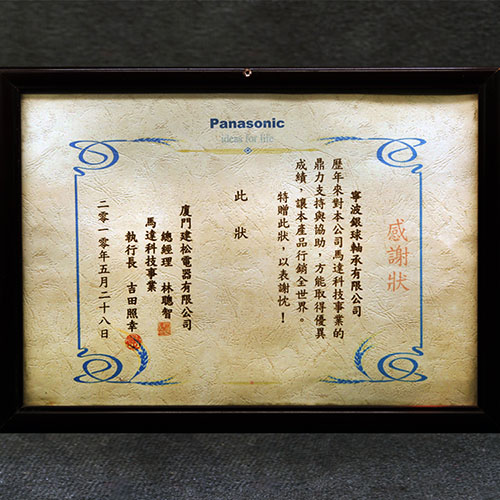 Panasonic
ideas for life
感謝狀
寧波銀球軸承有限公司
歷年來對本公司馬達科技事業的
鼎力支持與協助，方能取得優異
成績，讓本產品行銷全世界。
特贈此狀，以表謝忱！
此狀
廈門建松電器有限公司
總經理 林聰智
馬達科技事業
執行長 吉田照幸
二零一零年五月二十八日